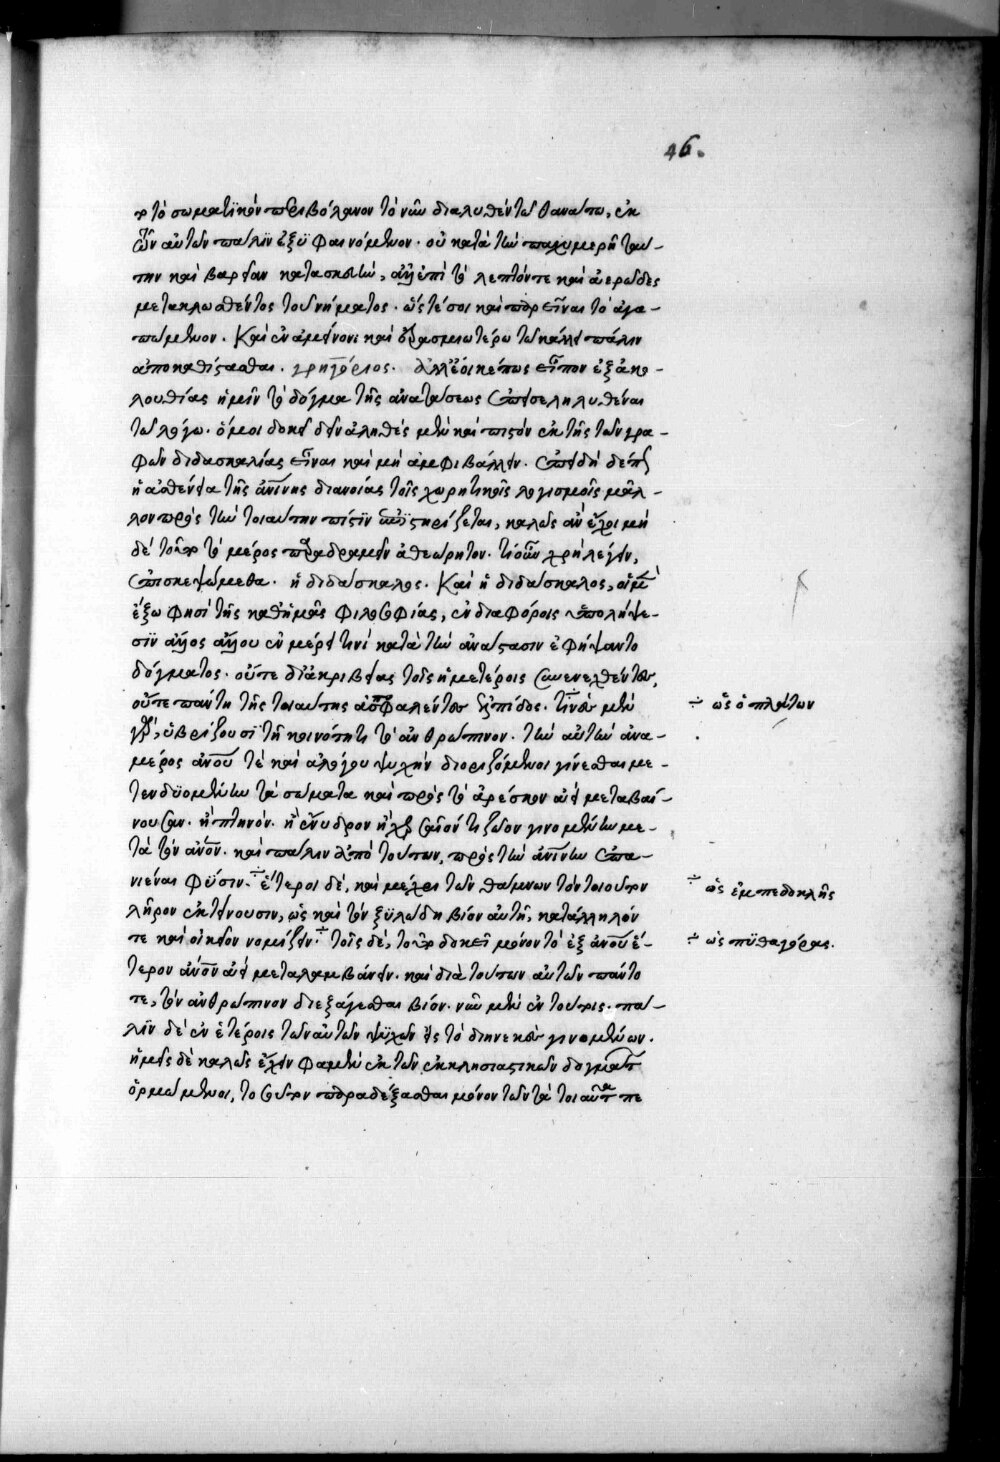 46.
τὸ σωματικὸν περιβόλαιον τὸ νῦν διαλυθὲν τῷ θανάτῳ, ἐκ
τῶν αὐτῶν πάλιν ἐξυφαινόμενον. οὐ κατὰ τὴν παχυμερῆ ταύ-
την καὶ βαρεῖαν κατασκευὴν, ἀλλ' ἐπὶ τὸ λεπτόν τε καὶ ἀερῶδες
μετακλωσθέντος τοῦ νήματος. ὥστέ σοι καὶ παρεῖναι τὸ ἀγα-
πώμενον. Καὶ ἐν ἀμείνονι καὶ ἐρασμιωτέρῳ τῷ κάλλει πάλιν
ἀποκαθίστασθαι. γρηγόριος. Ἀλλ' ἔοικέ πως εἶπον ἐξ ἀκο-
λουθίας ἡμῖν τὸ δόγμα τῆς ἀναστάσεως ἐπεισεληλυθέναι
τῷ λόγῳ. ὅ μοι δοκεῖ ἀληθὲς μὲν καὶ πιστὸν ἐκ τῆς τῶν γρα-
φῶν διδασκαλίας εἶναι καὶ μὴ ἀμφιβάλλειν. ἐπειδὴ δέ πως
ἡ ἀσθένεια τῆς ἀνθρωπίνης διανοίας τοῖς χωρητικοῖς λογισμοῖς μᾶλ-
λον πρὸς τὴν τοιαύτην πίστιν ὑποστηρίζεται, καλῶς ἂν ἔχοι μὴ
δὲ τοῦτο τὸ μέρος παραδραμεῖν ἀθεώρητον. τί οὖν χρὴ λέγειν,
ἐπισκεψώμεθα. ἡ διδάσκαλος. Καὶ ἡ διδάσκαλος, οἱ μὲν
ἔξω φησὶ τῆς καθ' ἡμᾶς φιλοσοφίας, ἐν διαφόροις ὑπολήψε-
σιν ἄλλος ἄλλου ἐν μέρει τινὶ κατὰ τὴν ἀνάστασιν ἐφήψαντο
δόγματος. οὔτε δι' ἀκριβείας τοῖς ἡμετέροις συνενεχθέντες,
οὔτε πάντη τῆς τοιαύτης ἀποσφαλέντες ἐλπίδος. τινὲς μὲν
γὰρ, ὑβρίζουσι τῇ κοινότητι τὸ ἀνθρώπινον. τὴν αὐτὴν ἀνα-
μέρος ἀνθρώπου τὲ καὶ ἀλόγου ψυχὴν διοριζόμενοι γίνεσθαι με-
τενδυομένην τὰ σώματα καὶ πρὸς τὸ ἀρέσκον ἀεὶ μεταβαί-
νουσαν. ἢ πτηνόν. ἢ ἔνυδρον ἢ χερσαῖόν τι ζῶον γινομένην με-
τὰ τὸν ἄνθρωπον. καὶ πάλιν ἀπὸ τούτων, πρὸς τὴν ἀνθρωπίνην ἐπα-
νιέναι φύσιν. ÷ ἕτεροι δὲ, καὶ μέχρι τῶν θάμνων τὸν τοιοῦτον
λῆρον ἐκτείνουσιν, ὡς καὶ τὸν ξυλώδη βίον αὐτῇ, κατάλληλόν
τε καὶ οἰκεῖον νομίζειν. ÷ τοῖς δὲ, τοῦτο δοκεῖ μόνον τὸ ἐξ ἀνθρώπου ἕ-
τερον ἄνθρωπον ἀεὶ μεταλαμβάνειν. καὶ διὰ τούτων αὐτῶν πάντο
τε, τὸν ἀνθρώπινον διεξάγεσθαι βίον. νῦν μὲν ἐν τούτοις. πά-
λιν δὲ ἐν ἑτέροις τῶν αὐτῶν ψυχῶν εἰς τὸ διηνεκὲς γινομένων.
ἡμεῖς δὲ καλῶς ἔχειν φαμὲν ἐκ τῶν ἐκκλησιαστικῶν δογμάτων
ὁρμώμενοι, τοσοῦτον παραδέξασθαι μόνον τῶν τὰ τοιαῦτα πε
÷ ὡς ὁ πλάτων
÷ ὡς ἐμπεδοκλῆς
÷ ὡς πυθαγόρας.